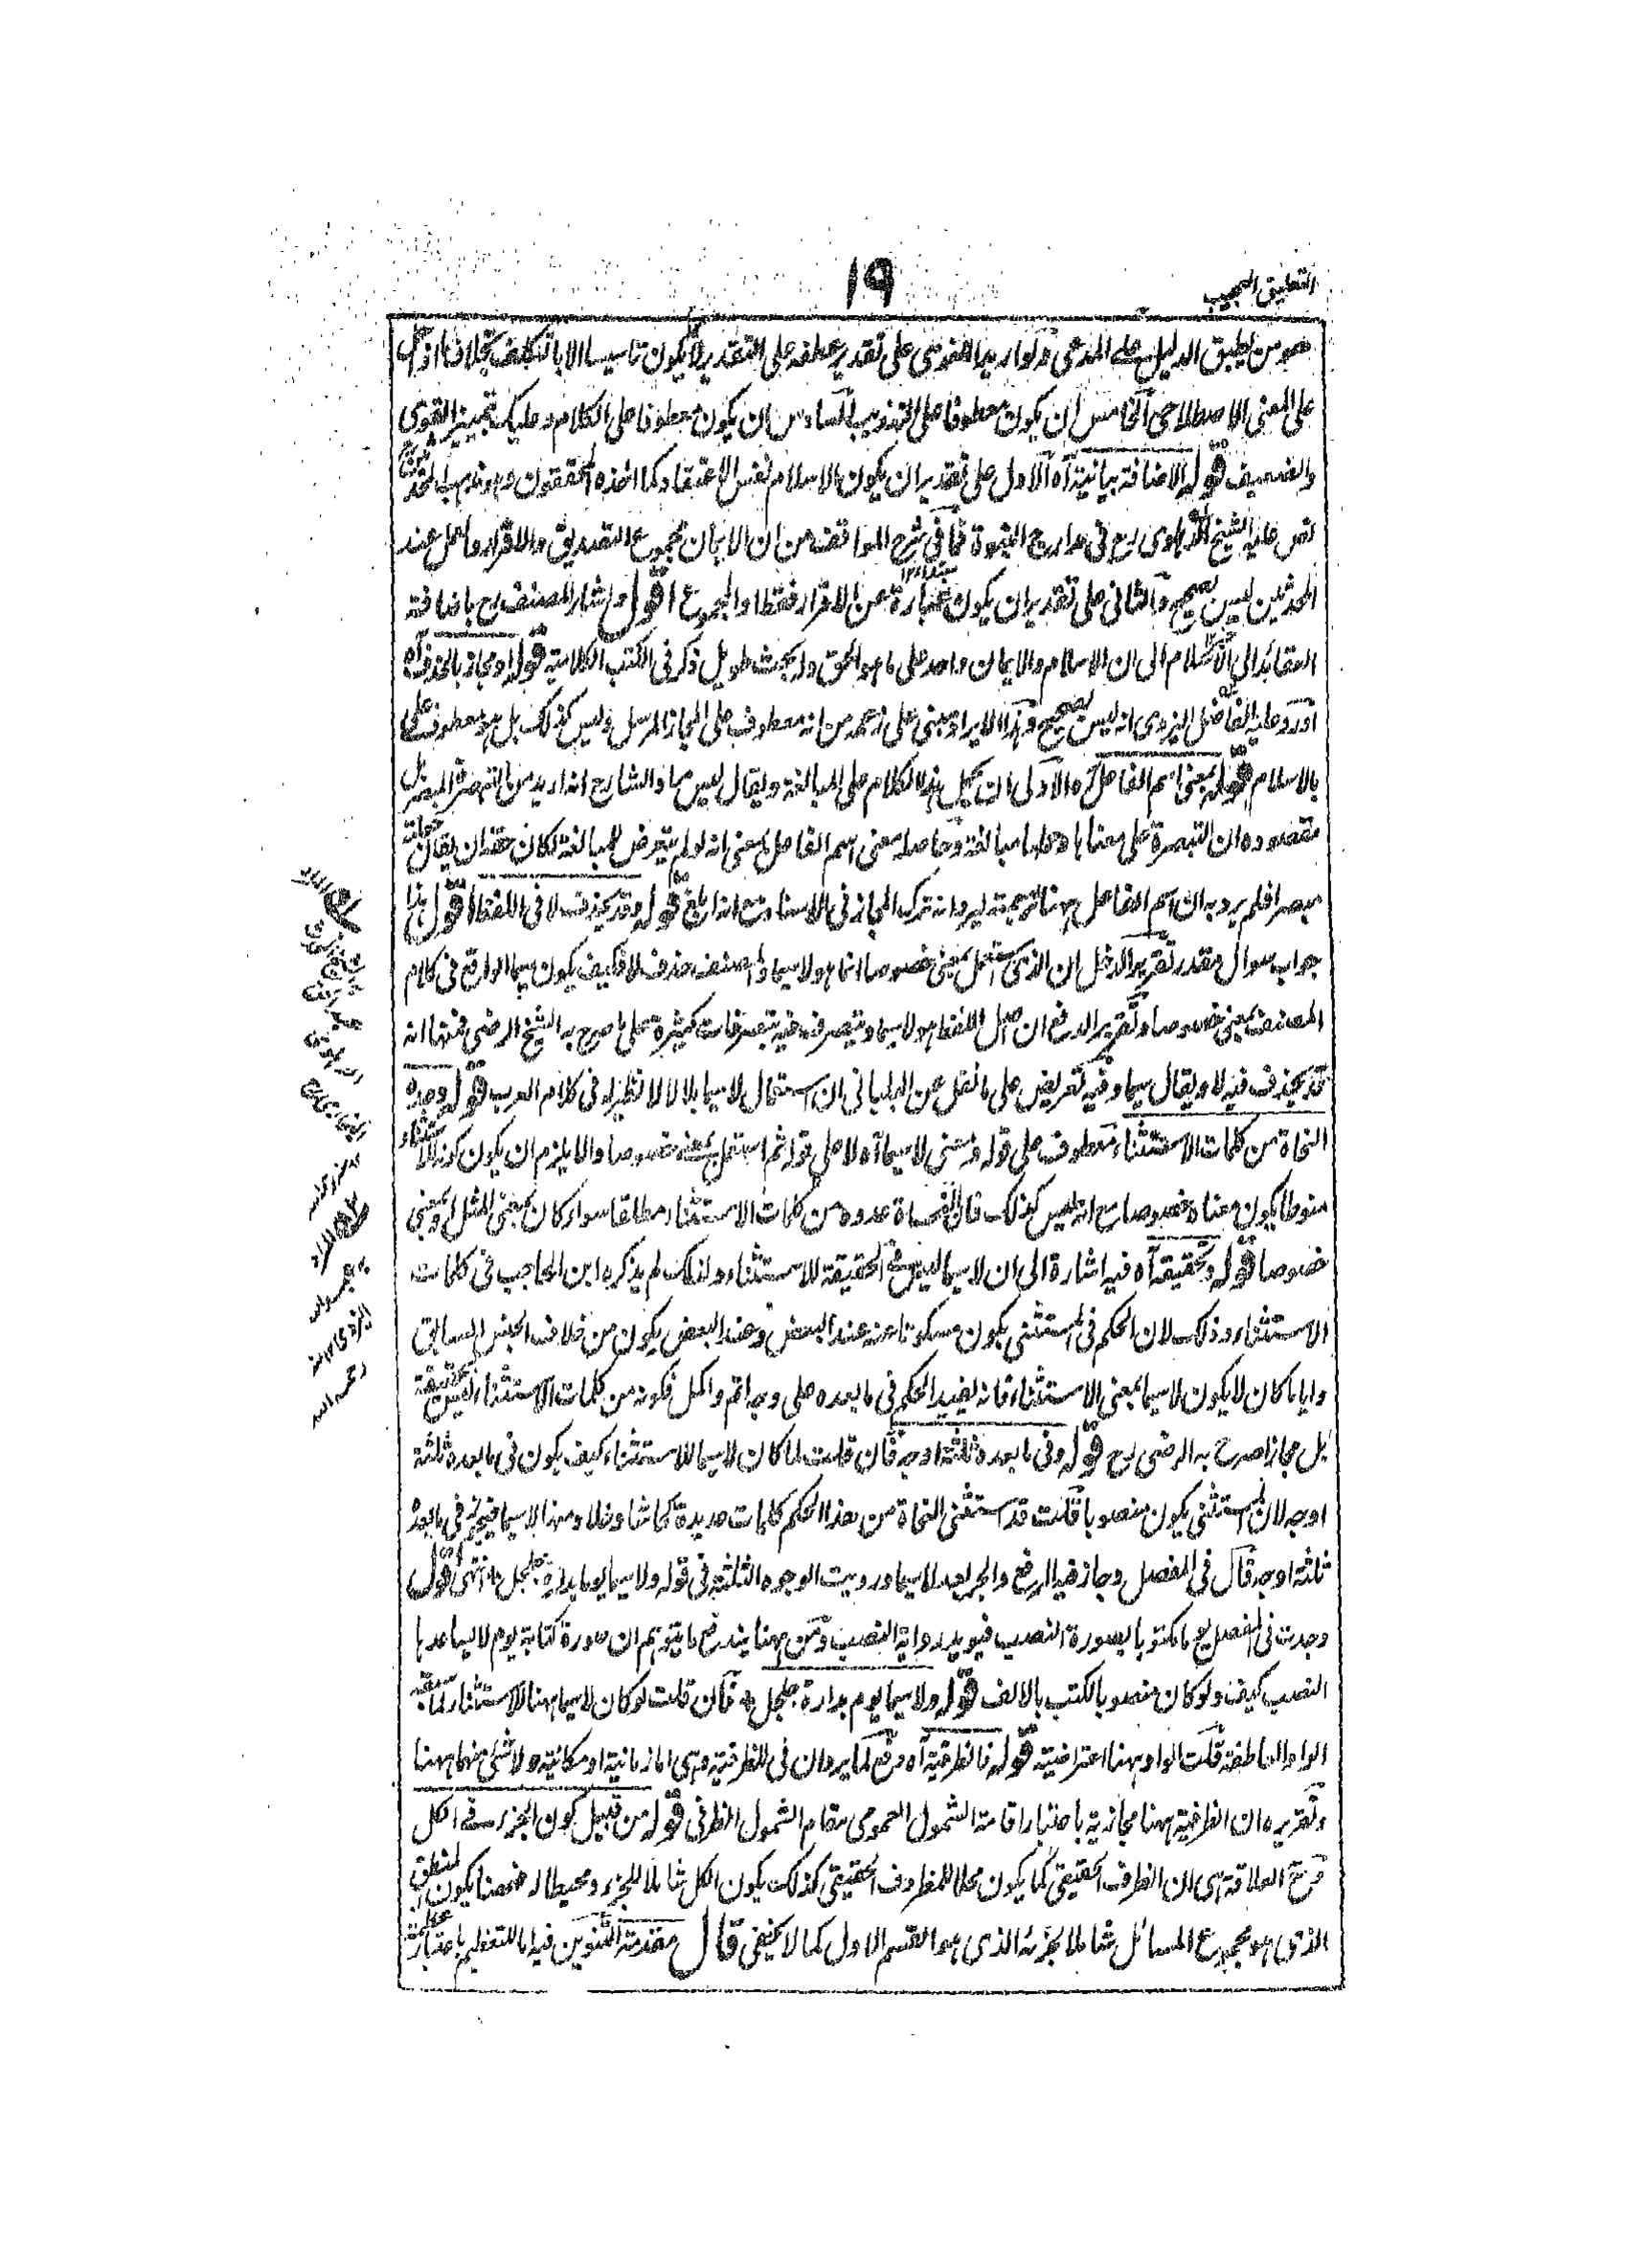 التعليق العجيب
١٩
من يطبق الدليل على المدعى ولو اريد اللغوى على تقدير عطفه على التقدير لا يكون تاسيسا الا بالتكليف بخلاف ما اذا حمل
على المعنى الاصطلاحى الخامس ان يكون معطوفا على التهذيب السادس ان يكون معطوفا على الكلام وعليك بتمييز القوى
والضعيف قوله الاضافة بيانية آه الاول على تقدير ان يكون الاسلام نفس الاعتقاد كما اخذه المحققون وهو مذهب المحدثين
نص عليه الشيخ الدهلوى رح فى مدارج النبوة فما فى شرح المواقف من ان الايمان مجموع التصديق والاقرار والعمل عند
المحدثين ليس بصحيح والثانى على تقدير ان يكون عبارة عن الاقرار فقط او المجموع اقول واشار المصنف رح باضافة
العقائد الى الاسلام الى ان الاسلام والايمان واحد على ما هو الحق وله بحث طويل ذكر فى الكتب الكلامية قوله او مجاز بالحذف آه
اورد عليه الفاضل اليزدى انه ليس بصحيح وهذا الايراد مبنى على زعمه من انه معطوف على المجاز المرسل وليس كذلك بل هو معطوف على
بالاسلام قوله بمعنى اسم الفاعل آه الاولى ان يحمل هذا الكلام على المبالغة ويقال ليس مراد الشارح انه اريد من التبصرة المبصر بل
مقصوده ان التبصرة على معناها وحملها مبالغة وحاصله معنى اسم الفاعل بمعنى انه لو لم يتعرض للمبالغة لكان حقه ان يقال جعلته
مبصرا فلم يرد به ان اسم الفاعل ههنا ترجمة ليرد انه ترك المجاز فى الاسناد مع انه ابلغ قوله وقد يحذف لا فى اللفظ اقول هذا
جواب سوال مقدر تقرير الدخل ان الذى استعمل بمعنى خصوصا انما هو لا سيما والمصنف حذف لا فكيف يكون سيما الواقع فى كلام
المصنف بمعنى خصوصا وتقرير الدفع ان اصل اللفظ هو لا سيما ويتصرف فيه بتصرفات كثيرة على ما صرح به الشيخ الرضى فمنها انه
قد يحذف فيه لا ويقال سيما وفيه تعريض على ما نقل عن البليانى ان استعمال لا سيما بلا لا لا نظير له فى كلام العرب قوله وعده
النحاة من كلمات الاستثناء معطوف على قوله ومعنى لا سيما آه لا على قوله ثم استعمل بمعنى خصوصا والا يلزم ان يكون كونه للاستثناء
منوطا بكون معناه خصوصا مع انه ليس كذلك فان النحاة عدوه من كلمات الاستثناء مطلقا سواء كان بمعنى المثل او بمعنى
خصوصا قوله وتحقيقه آه فيه اشارة الى ان لا سيما ليس فى الحقيقة للاستثناء ولذلك لم يذكره ابن الحاجب فى كلمات
الاستثناء وذلك لان الحكم فى المستثنى يكون مسكوتا عنه عند البعض وعند البعض يكون من خلاف الجنس السابق
وايا ما كان لا يكون لا سيما بمعنى الاستثناء فانه يفيد الحكم فى ما بعده على وجه اتم واكمل فكونه من كلمات الاستثناء ليس حقيقة
بل مجازا صرح به الرضى رح قوله وفى ما بعده ثلثة اوجه فان قلت لما كان لا سيما للاستثناء كيف يكون فى ما بعده ثلثة
اوجه لان المستثنى يكون منصوبا قلت قد استثنى النحاة من هذا الحكم كلمات عديدة كحاشا وخلا ومنها لا سيما فيجوز فى ما بعده
ثلثة اوجه قال فى المفصل وجاز فيه الرفع والجر بعد لا سيما ورويت الوجوه الثلثة فى قوله ولا سيما يوما بدارة جلجل انتهى اقول
وجدت فى المفصل يوما مكتوبا بصورة النصب فيويد رواية النصب ومن ههنا يندفع ما يتوهم ان صورة كتابة يوم لا يساعدها
النصب كيف ولو كان منصوبا لكتب بالالف قوله ولا سيما يوم بدارة جلجل فان قلت لو كان لا سيما ههنا للاستثناء لما سبقه
الواو العاطفة قلت الواو ههنا اعتراضية قوله فالظرفية آه دفع لما يرد ان فى للظرفية وهى اما زمانية او مكانية ولا شئ منهما ههنا
وتقريره ان الظرفية ههنا مجازية باعتبار اقامة الشمول العمومى مقام الشمول الظرفى قوله من قبيل كون الجزء فى الكل
العلاقة هى ان الظرف الحقيقى كما يكون محلا للمظروف الحقيقى كذلك يكون الكل شاملا للجزء ومحيطا له فههنا يكون المنطق
الذى هو مجموع المسائل شاملا لجزئه الذى هو القسم الاول كما لا يخفى قال مقدمة التنوين فيه اما للتعظيم باعتبار